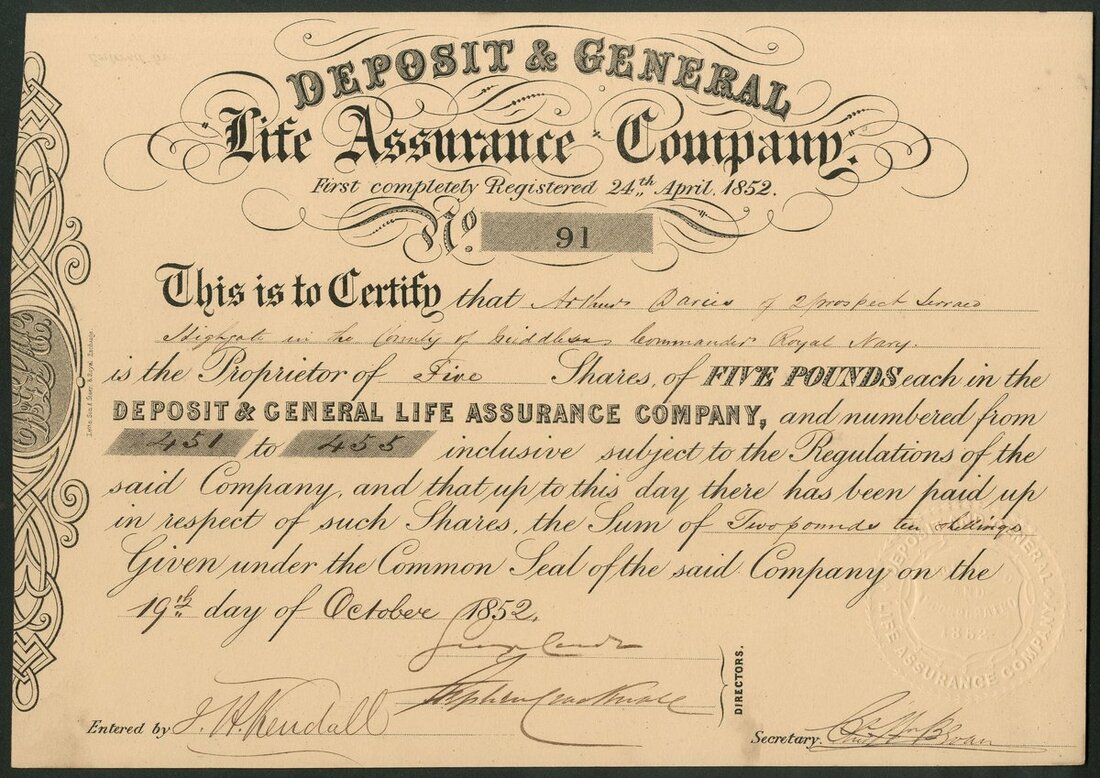 DEPOSIT & GENERAL
"Life Assurance Company."
First completely Registered 24th April, 1852.
No. 91
This is to Certify that Arthur Davies of 2 prospect Terrace
Highgate in the County of Middlesex Commander Royal Navy.
is the Proprietor of Five Shares, of FIVE POUNDS each in the
DEPOSIT & GENERAL LIFE ASSURANCE COMPANY, and numbered from
451 to 455 inclusive subject to the Regulations of the
said Company, and that up to this day there has been paid up
in respect of such Shares, the Sum of Two pounds ten shillings
Given under the Common Seal of the said Company on the
19th day of October 1852.
DIRECTORS.
Entered by J. H. Kendall
Secretary.
DEPOSIT AND GENERAL
LIFE ASSURANCE COMPANY
1852